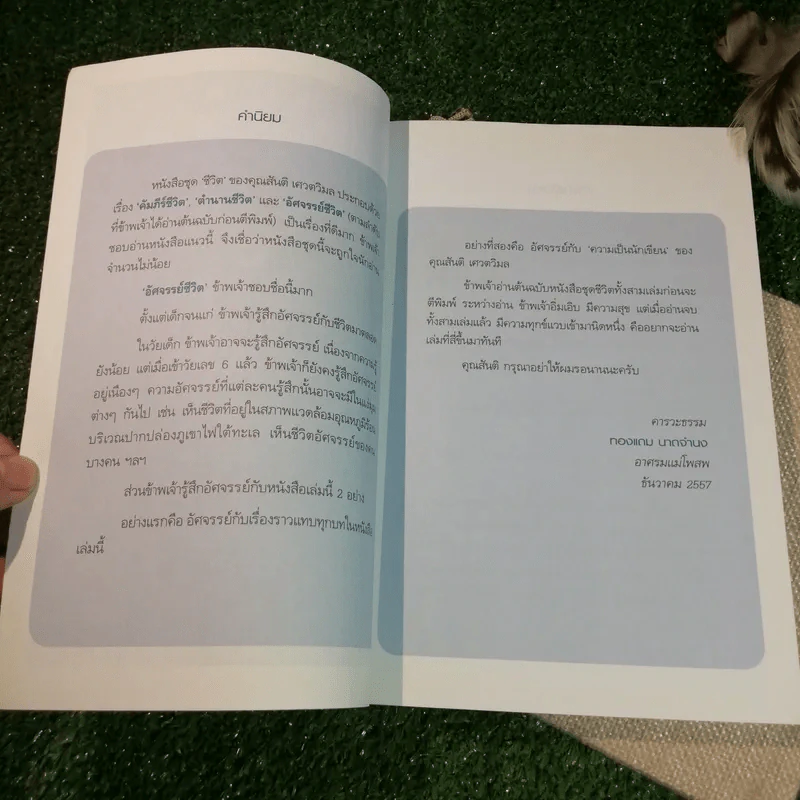 คำนิยม
หนังสือชุด 'ชีวิต' ของคุณสันติ เศวตวิมล ประกอบด้วย
เรื่อง 'คัมภีร์ชีวิต', 'ตำนานชีวิต' และ 'อัศจรรย์ชีวิต'
ที่ข้าพเจ้าได้อ่านต้นฉบับก่อนตีพิมพ์) เป็นเรื่องที่ดีมาก
ชอบอ่านหนังสือแนวนี้ จึงเชื่อว่าหนังสือชุดนี้จะถูกใจนักอ่าน
จำนวนไม่น้อย
'อัศจรรย์ชีวิต' ข้าพเจ้าชอบชื่อนี้มาก
ตั้งแต่เด็กจนแก่ ข้าพเจ้ารู้สึกอัศจรรย์กับชีวิตมาตลอด
ในวัยเด็ก ข้าพเจ้าอาจจะรู้สึกอัศจรรย์ เนื่องจากความรู้
ยังน้อย แต่เมื่อเข้าวัยเลข 6 แล้ว ข้าพเจ้าก็ยังคงรู้สึกอัศจรรย์
อยู่เนืองๆ ความอัศจรรย์ที่แต่ละคนรู้สึกนั้นอาจจะมีในแง่มุม
ต่างๆ กันไป เช่น เห็นชีวิตที่อยู่ในสภาพแวดล้อมอุณหภูมิร้อน
บริเวณปากปล่องภูเขาไฟใต้ทะเล เห็นชีวิตอัศจรรย์ของคน
บางคน ฯลฯ
ส่วนข้าพเจ้ารู้สึกอัศจรรย์กับหนังสือเล่มนี้ 2 อย่าง
อย่างแรกคือ อัศจรรย์กับเรื่องราวแทบทุกบทในหนังสือ
เล่มนี้
อย่างที่สองคือ อัศจรรย์กับ 'ความเป็นนักเขียน' ของ
คุณสันติ เศวตวิมล
ข้าพเจ้าอ่านต้นฉบับหนังสือชุดชีวิตทั้งสามเล่มก่อนจะ
ตีพิมพ์ ระหว่างอ่าน ข้าพเจ้าอิ่มเอิบ มีความสุข แต่เมื่ออ่านจบ
ทั้งสามเล่มแล้ว มีความทุกข์แวบเข้ามานิดหนึ่ง คืออยากจะอ่าน
เล่มที่สี่ขึ้นมาทันที
คุณสันติ กรุณาอย่าให้ผมรอนานนะครับ
คารวะธรรม
ทองแถม นาถจำนง
อาศรมแม่โพสพ
ธันวาคม 2557